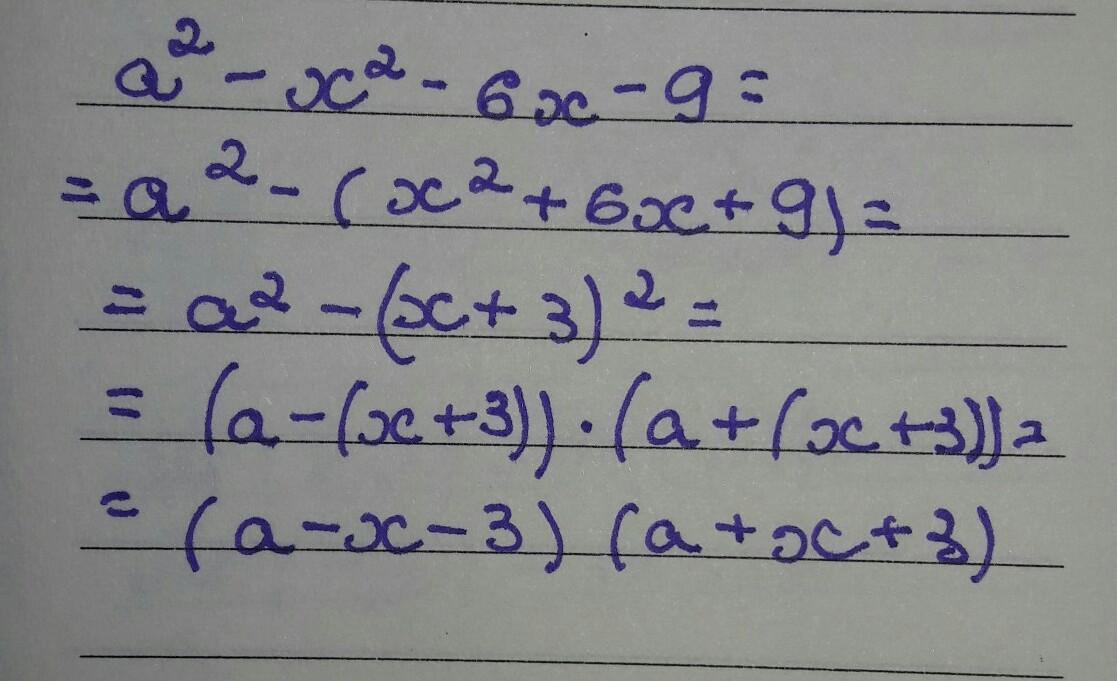 a² - x² - 6x - 9 =
= a² - (x² + 6x + 9) =
= a² - (x + 3)² =
= (a - (x + 3)) · (a + (x + 3)) =
= (a - x - 3) (a + x + 3)